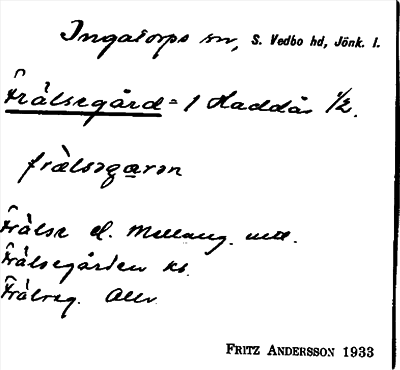 Ingatorps sn, S. Vedbo hd, Jönk. l.
Frälsegård = 1 Haddås 1/2.
frälsagaran
Frälse el. Mellang. utt.
Frälsegården kb.
Frälseg. Allm.
FRITZ ANDERSSON 1933